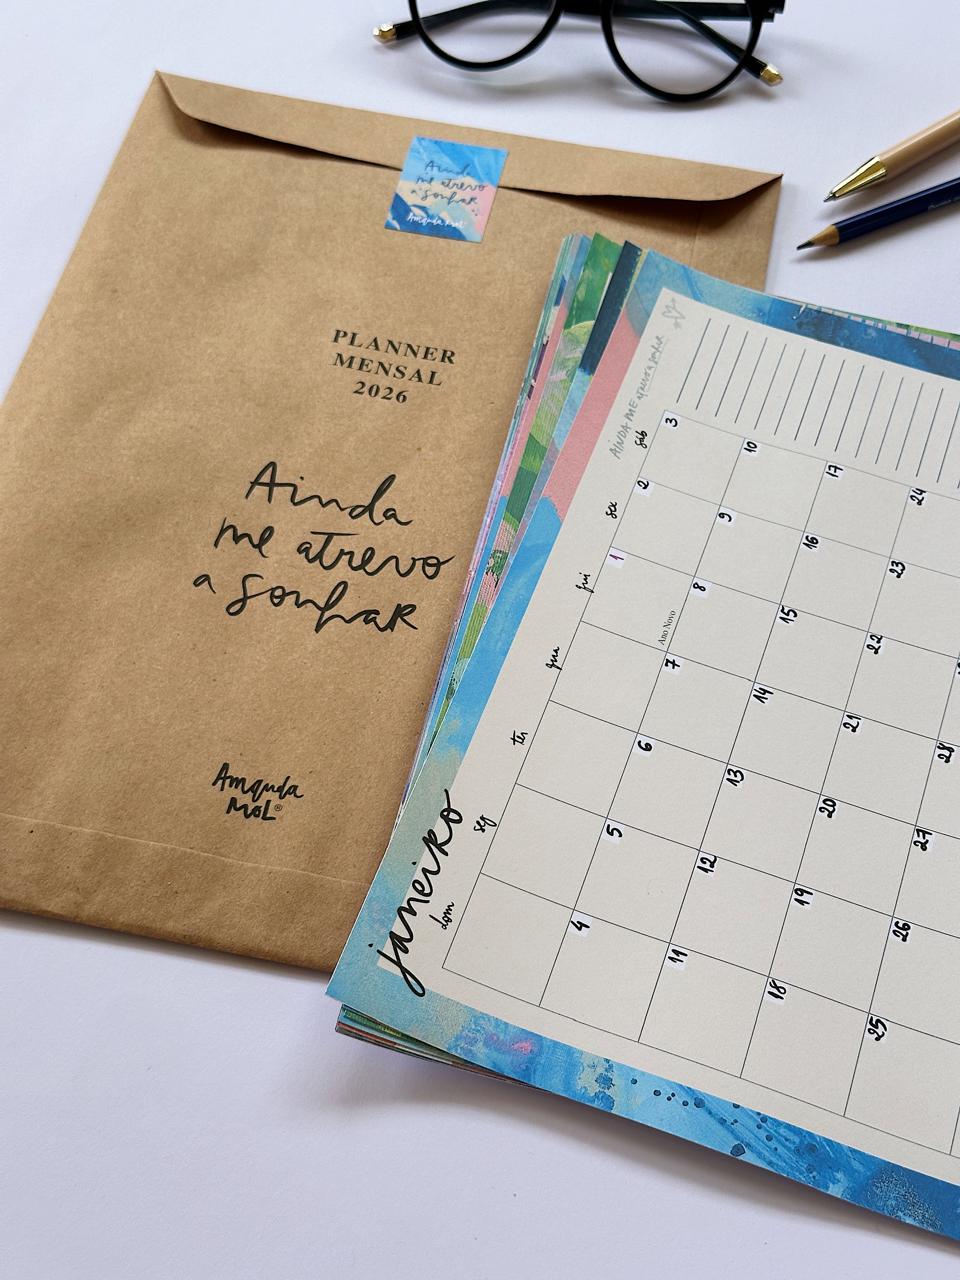 Ainda
me atrevo
a sonhar
Amanda Mol
PLANNER
MENSAL
2026
Ainda
me atrevo
a sonhar
Amanda
Mol®
AINDA ME atrevo a sonhar
janeiro
dom seg ter qua qui sex sáb
1 2 3
Ano Novo
4 5 6 7 8 9 10
11 12 13 14 15 16 17
18 19 20 21 22 23 24
25 26 27 28